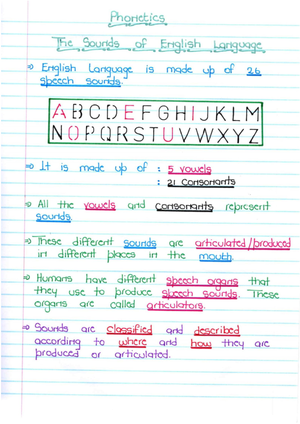 Phonetics
The Sounds of English Language
⇒ English Language is made up of 26
speech sounds.
A B C D E F G H I J K L M
N O P Q R S T U V W X Y Z
⇒ It is made up of : 5 vowels
: 21 consonants
⇒ All the vowels and consonants represent
sounds.
⇒ These different sounds are articulated/produced
in different places in the mouth.
⇒ Humans have different speech organs that
they use to produce speech sounds. These
organs are called articulators.
⇒ Sounds are classified and described
according to where and how they are
produced or articulated.